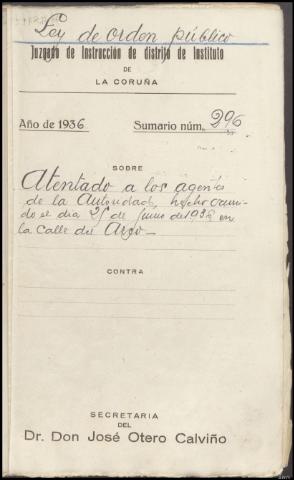 Ley de orden público
Juzgado de Instrucción de distrito de Instituto
DE
LA CORUÑA
Año de 1936 Sumario núm. 296
SOBRE
Atentado a los agentes
de la Autoridad, hecho ocurri-
do el dia de Junio de 1936 en
la calle del
CONTRA
SECRETARIA
DEL
Dr. Don José Otero Calviño